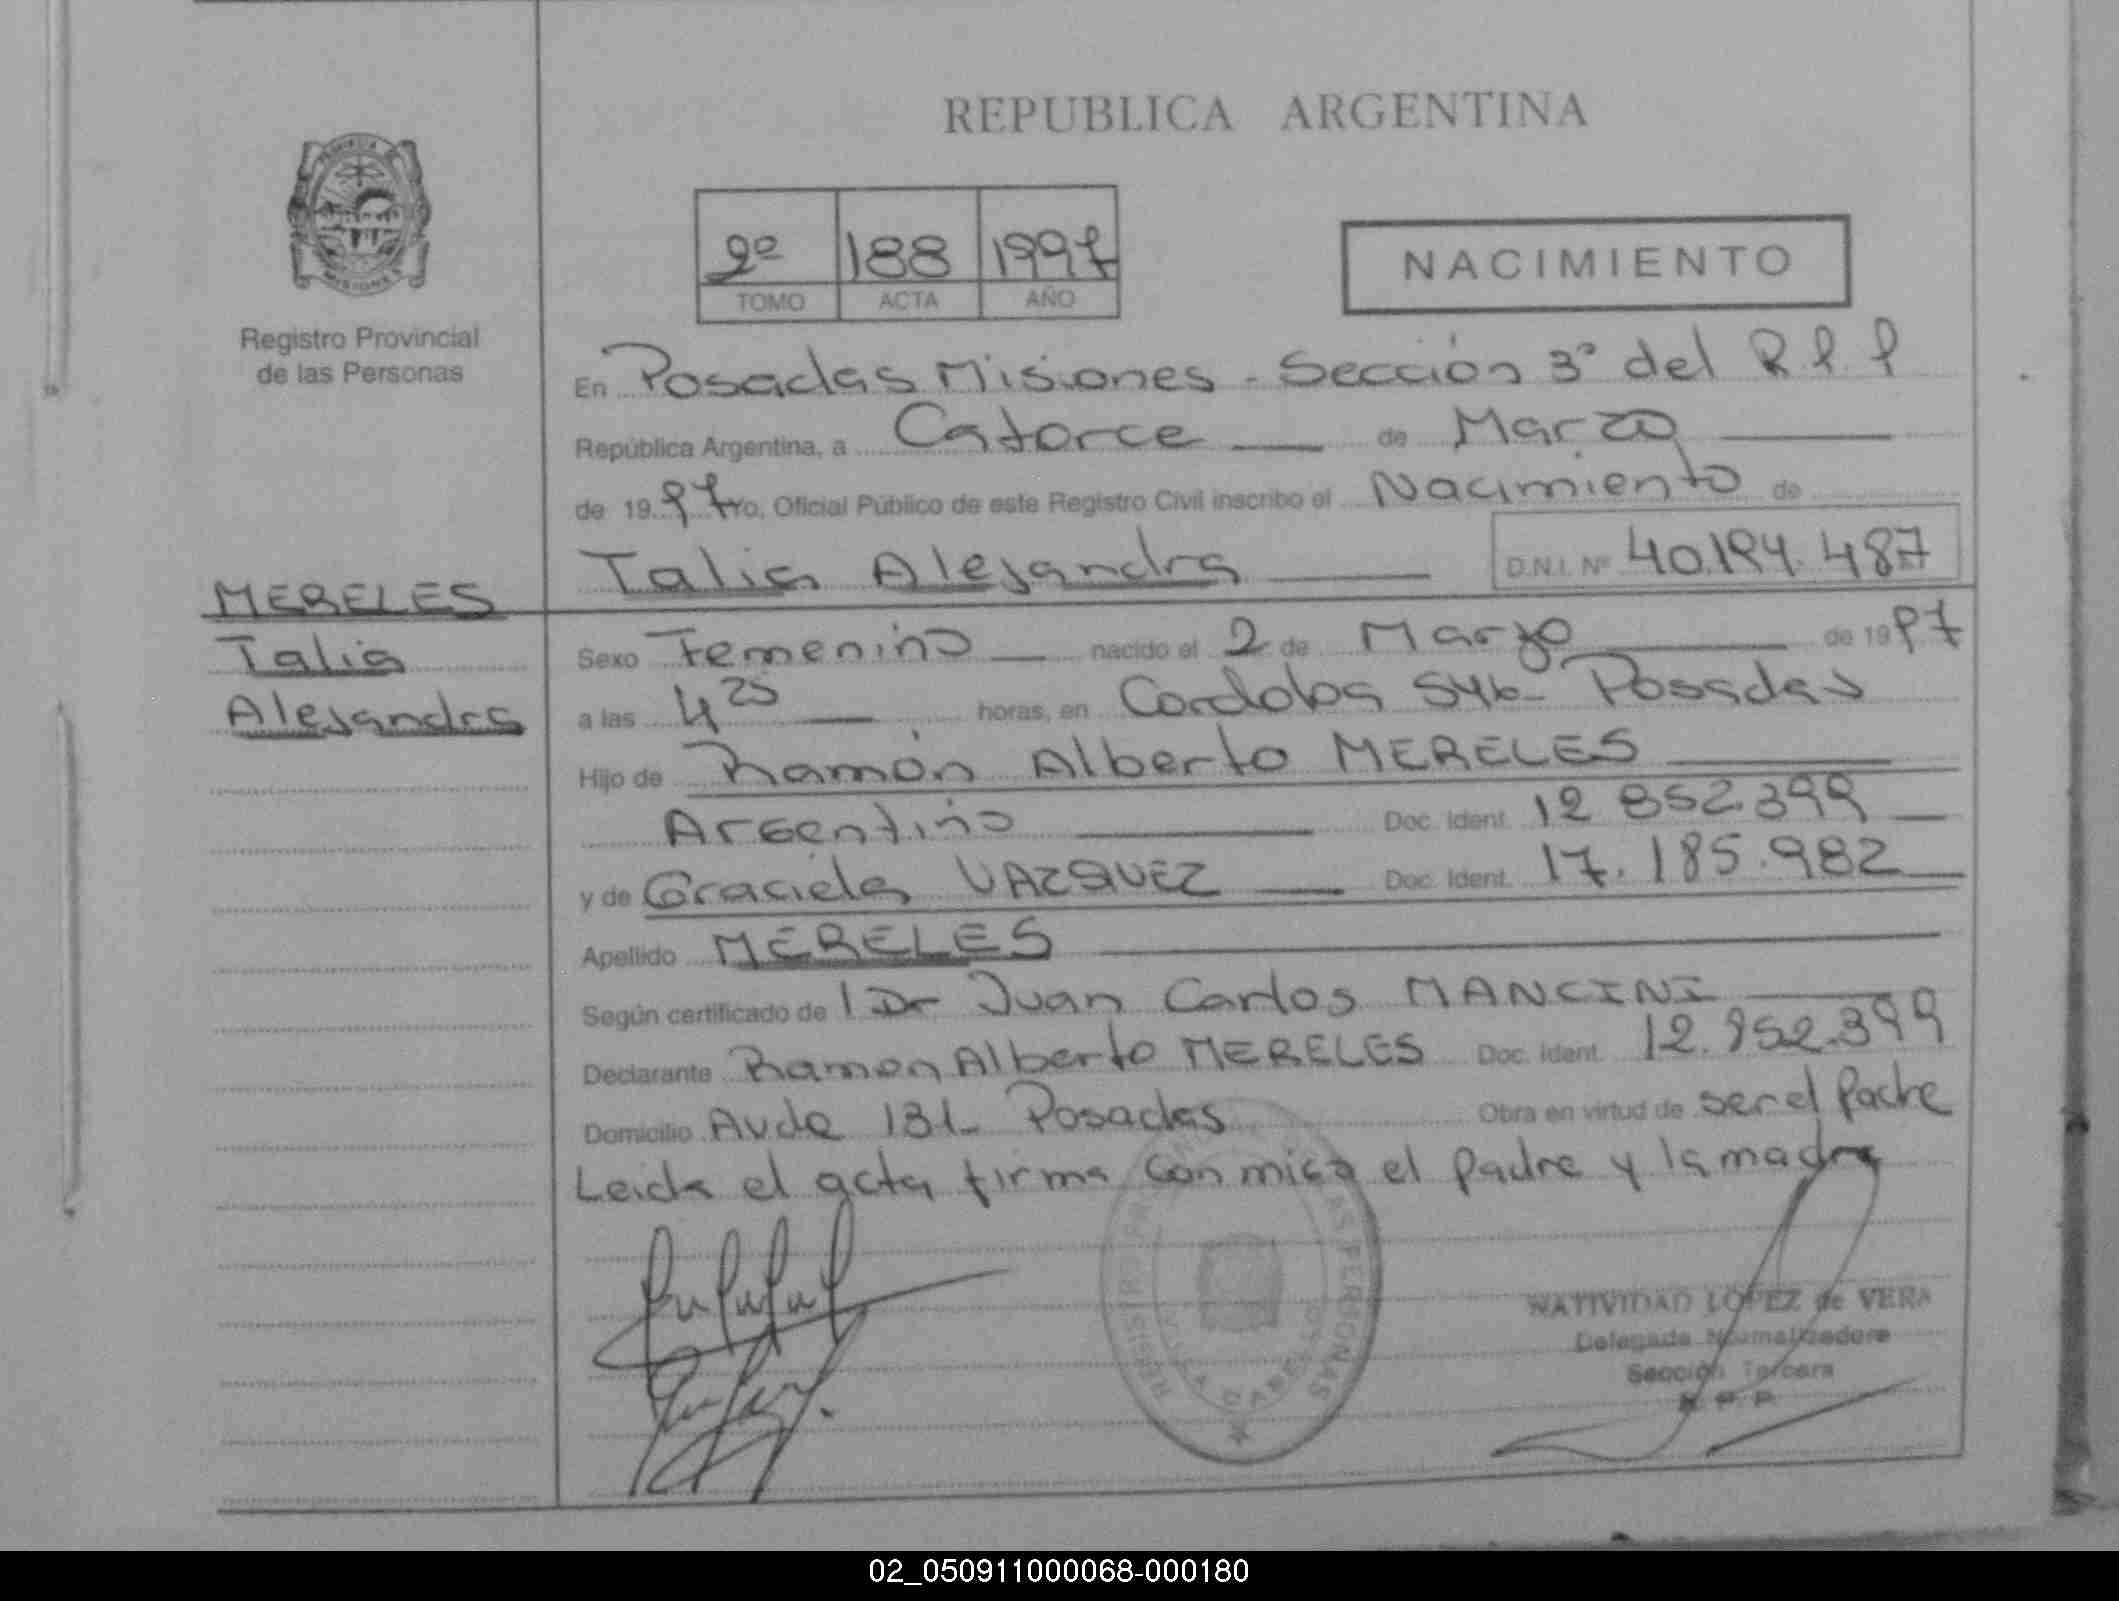 REPUBLICA ARGENTINA
PROVINCIA
MISIONES
Registro Provincial
de las Personas
2º 188 1997
TOMO ACTA AÑO
NACIMIENTO
En Posadas Misiones - Sección 3º del R P P
República Argentina, a Catorce de Marzo
de 1997 Yo, Oficial Público de este Registro Civil inscribo el Nacimiento de
Talia Alejandra D.N.I. Nº 40.194.487
MERELES
Talia
Alejandra
Sexo Femenino nacido el 2 de Marzo de 1997
a las 4 25 horas, en Cordoba Posadas
Hijo de Ramón Alberto MERELES
Argentino Doc. Ident. 12 852.399
y de Graciela VAZQUEZ Doc. Ident. 17.185.982
Apellido MERELES
Según certificado de l Dr Juan Carlos MANCINI
Declarante Ramon Alberto MERELES Doc. Ident. 12.852.399
Domicilio Avda 131- Posadas Obra en virtud de ser el Padre
Leida el acta firma con migo el padre y la madre
PERSONAS
NATIVIDAD LOPEZ de VERA
Delegada Normalizadora
Sección Tercera
R. P. P.
02_050911000068-000180